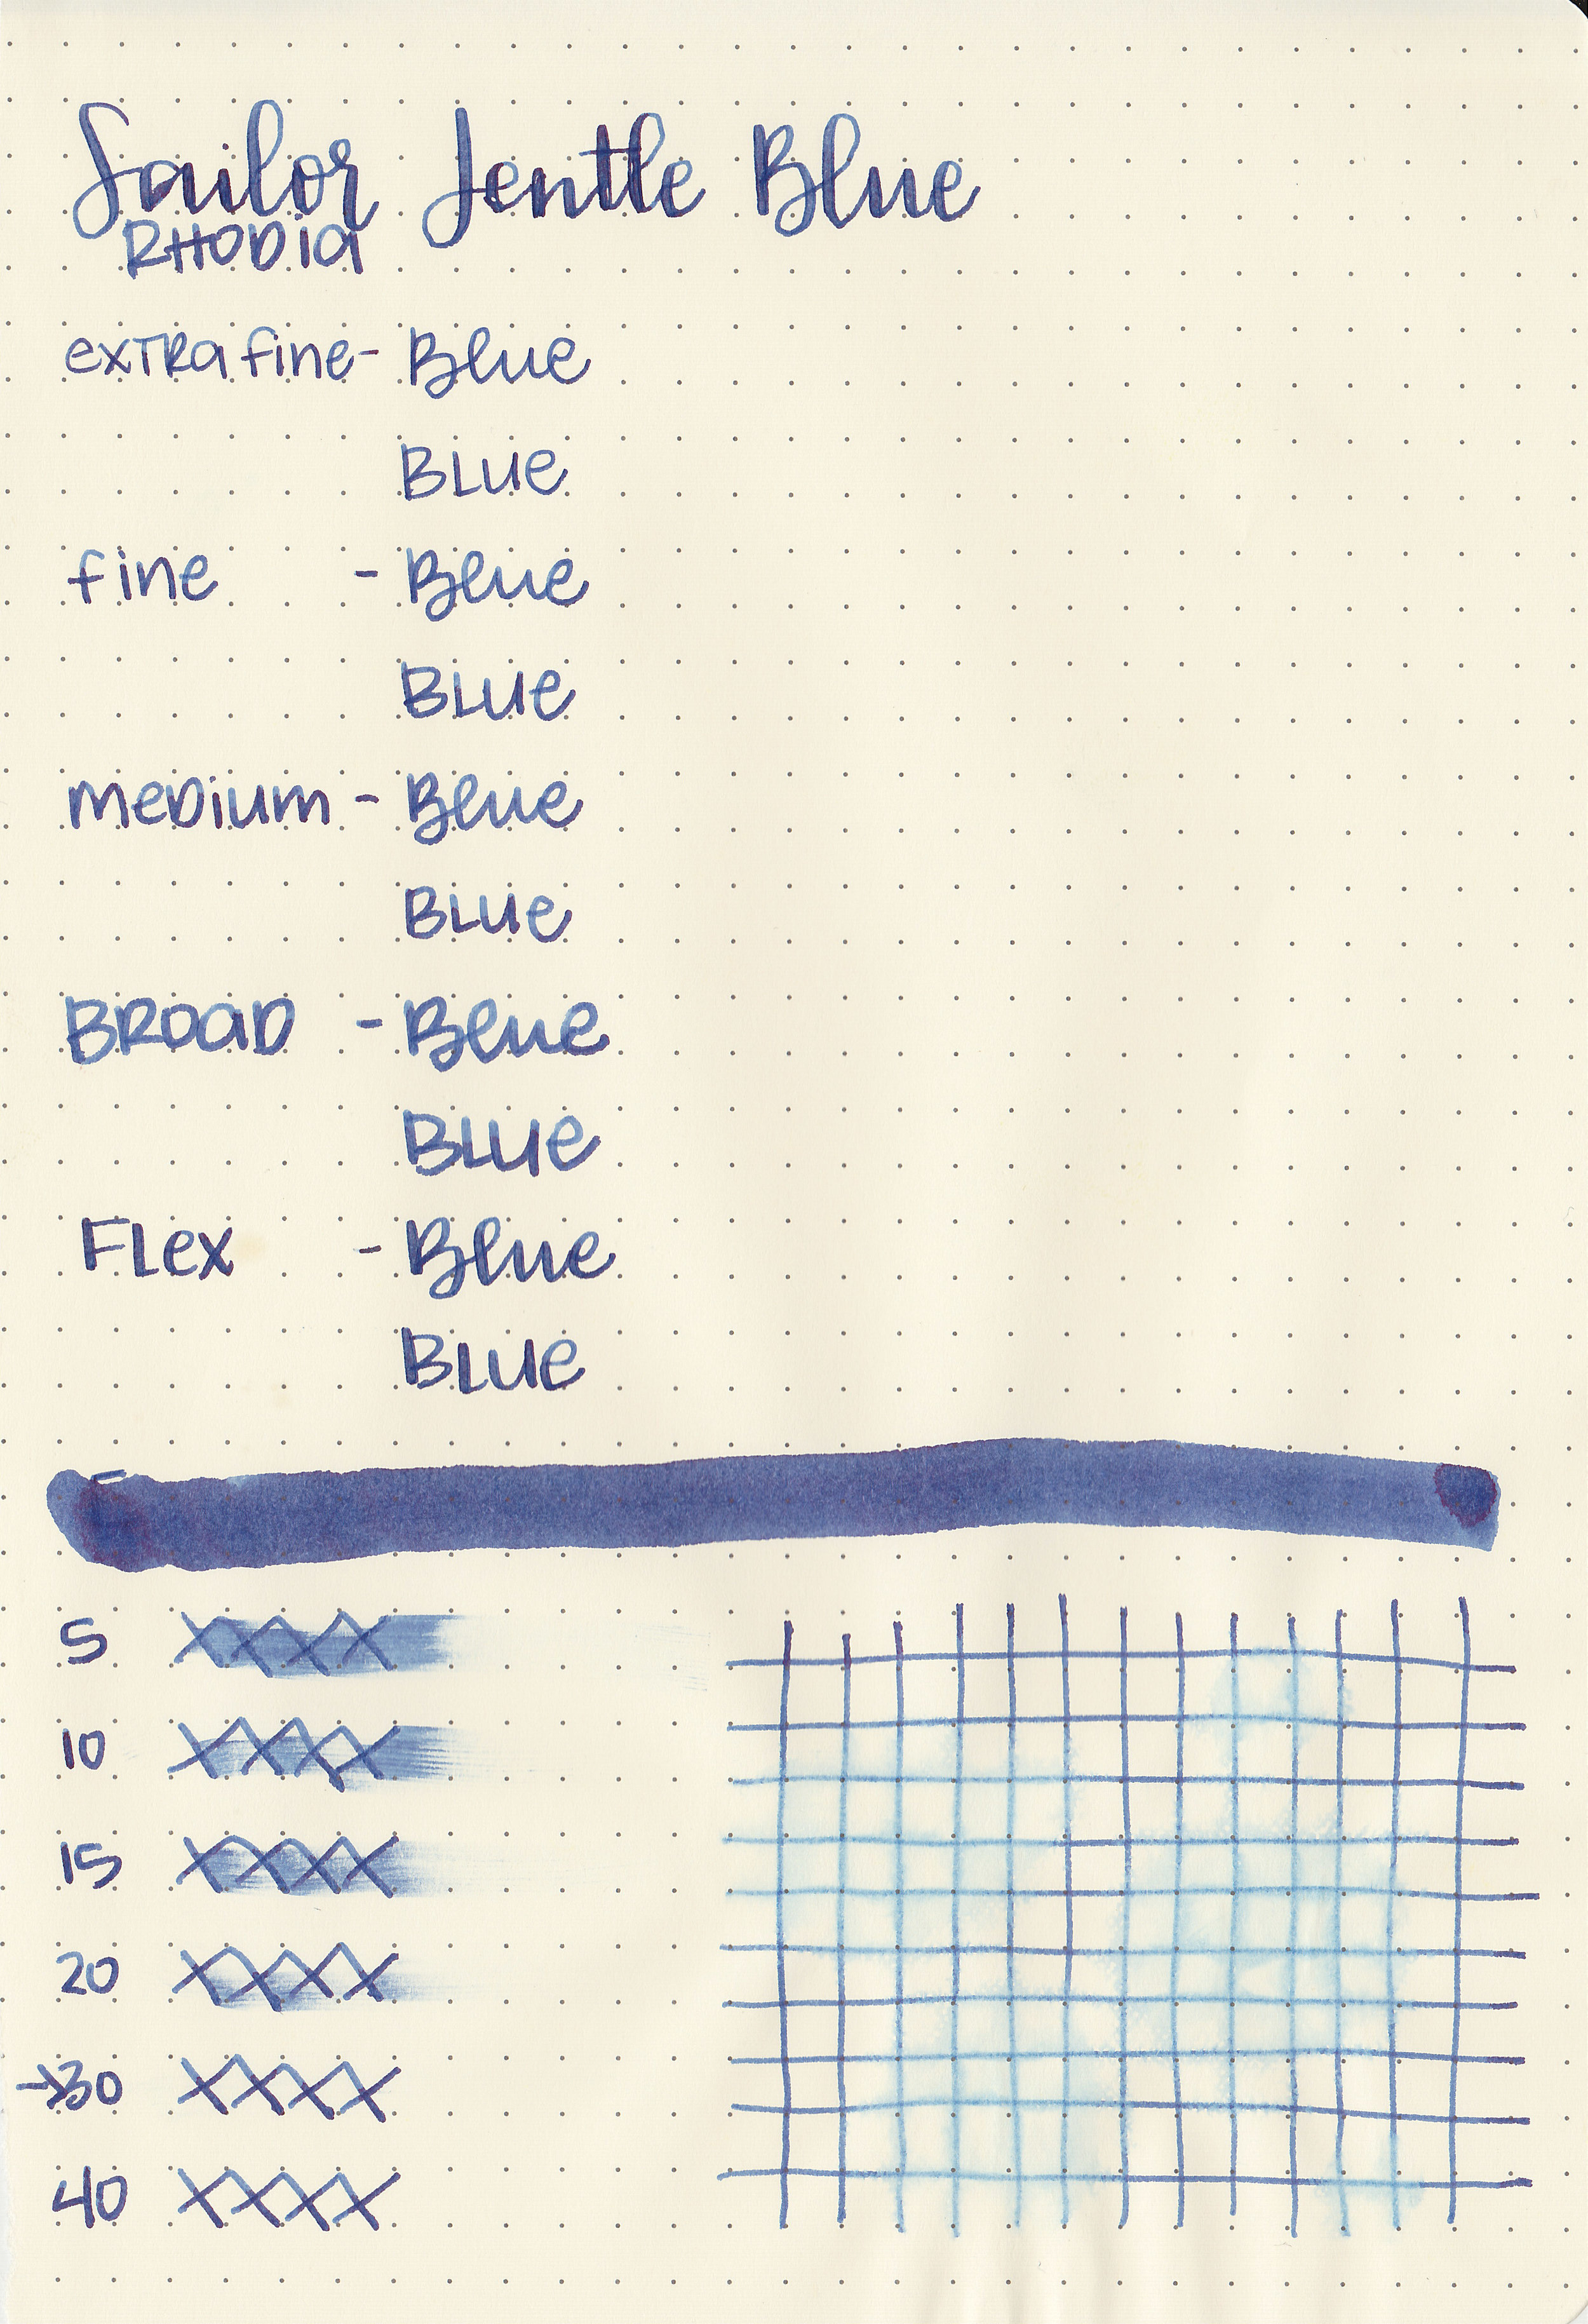 Sailor Jentle Blue
RHODia
exTRa fine- Blue
BLue
fine - Blue
BLue
meDium - Blue
BLue
BROaD - Blue
BLue
FLex - Blue
BLue
5 XXXX
10 XXXX
15 XXXX
20 XXXX
→30 XXXX
40 XXXX